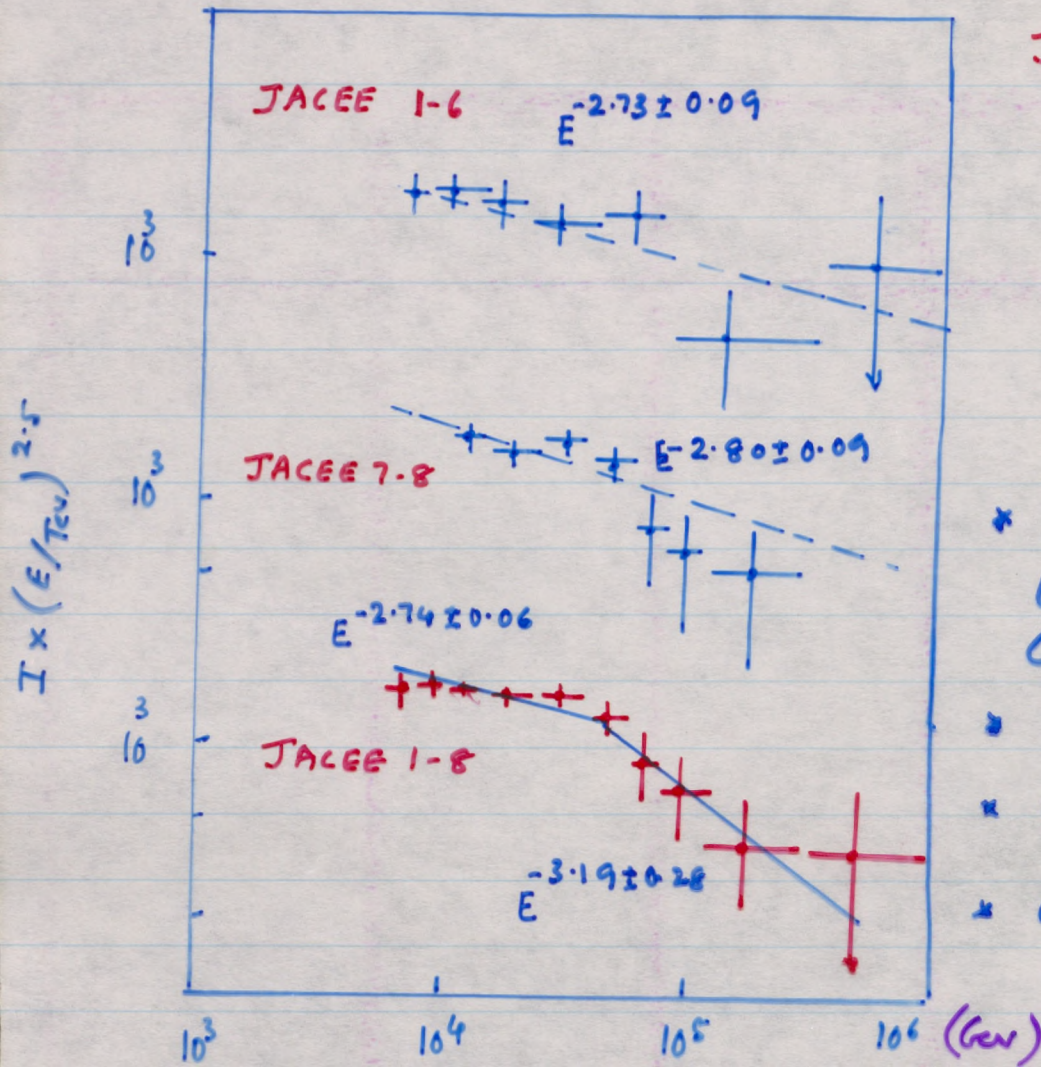 JACEE 1-6
E^-2.73 ± 0.09
10^3
JACEE 7-8
E^-2.80 ± 0.09
10^3
I x (E/Tev)^2.5
E^-2.74 ± 0.06
10^3
JACEE 1-8
E^-3.19 ± 0.28
10^3 10^4 10^5 10^6 (Gev)